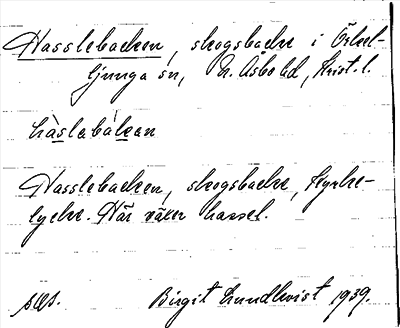 Hasslebacken, skogsbacke i Örkel-
ljunga sn, N. Åsbo hd, Krist. l.
hàslebàkan
Hasslebacken, skogsbacke, Kyrke-
lycke. Här växer hassel.
Birgit Lundkvist 1939.